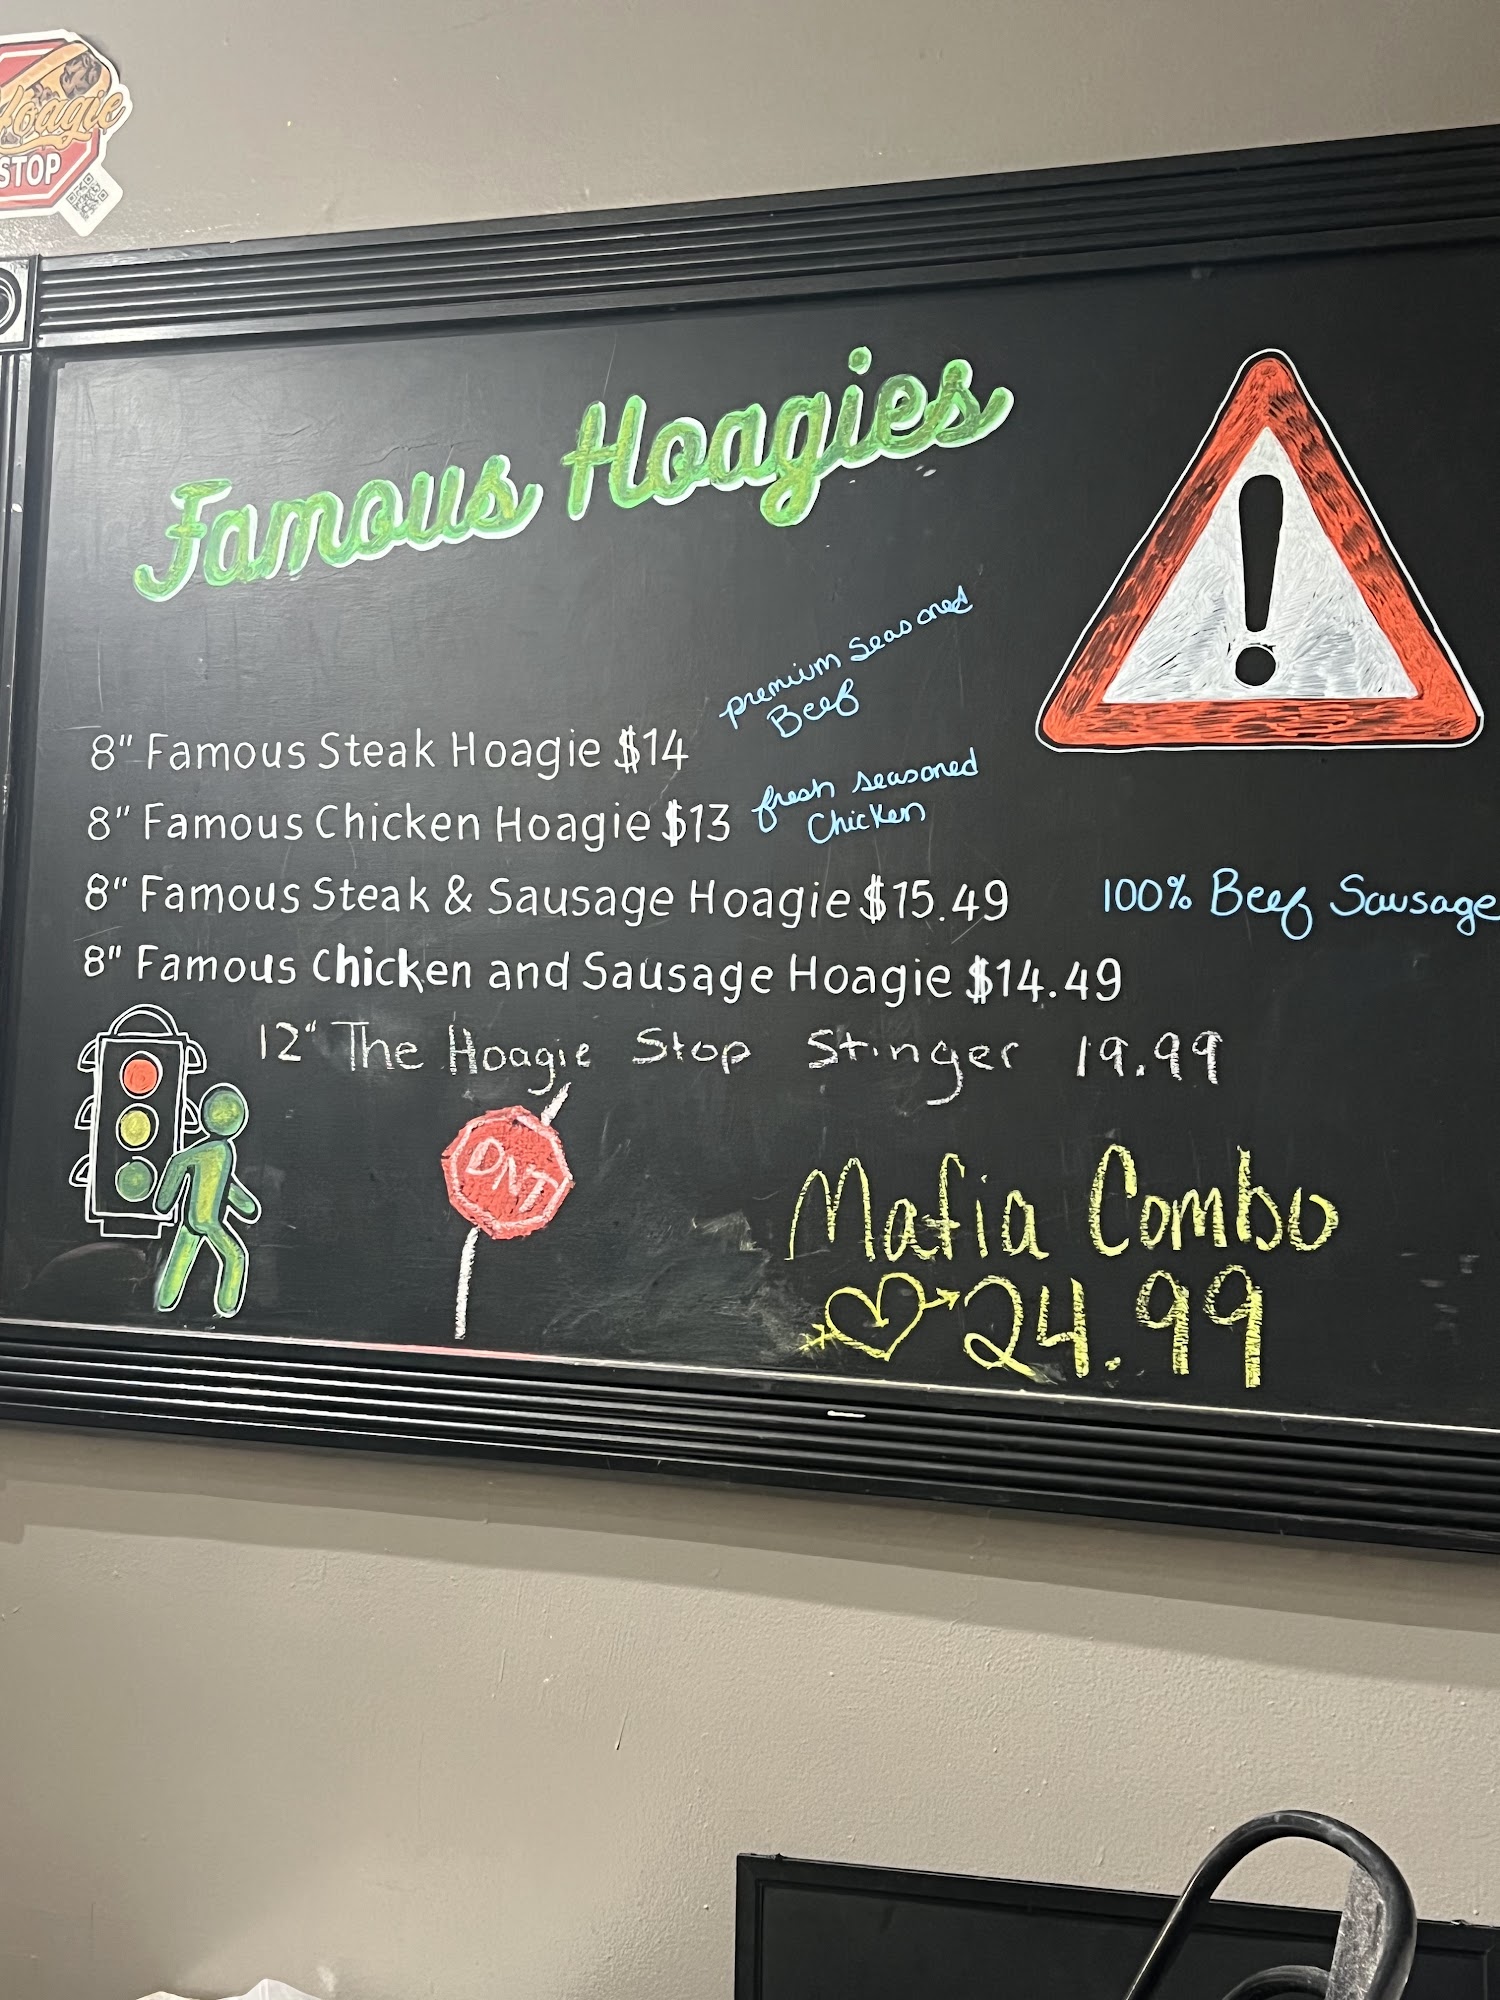 Hoagie
STOP
Famous Hoagies
8" Famous Steak Hoagie $14
premium seasoned
Beef
8" Famous Chicken Hoagie $13
fresh seasoned
Chicken
8" Famous Steak & Sausage Hoagie $15.49
100% Beef Sausage
8" Famous Chicken and Sausage Hoagie $14.49
12" The Hoagie Stop Stinger 19.99
DNT
Mafia Combo
24.99